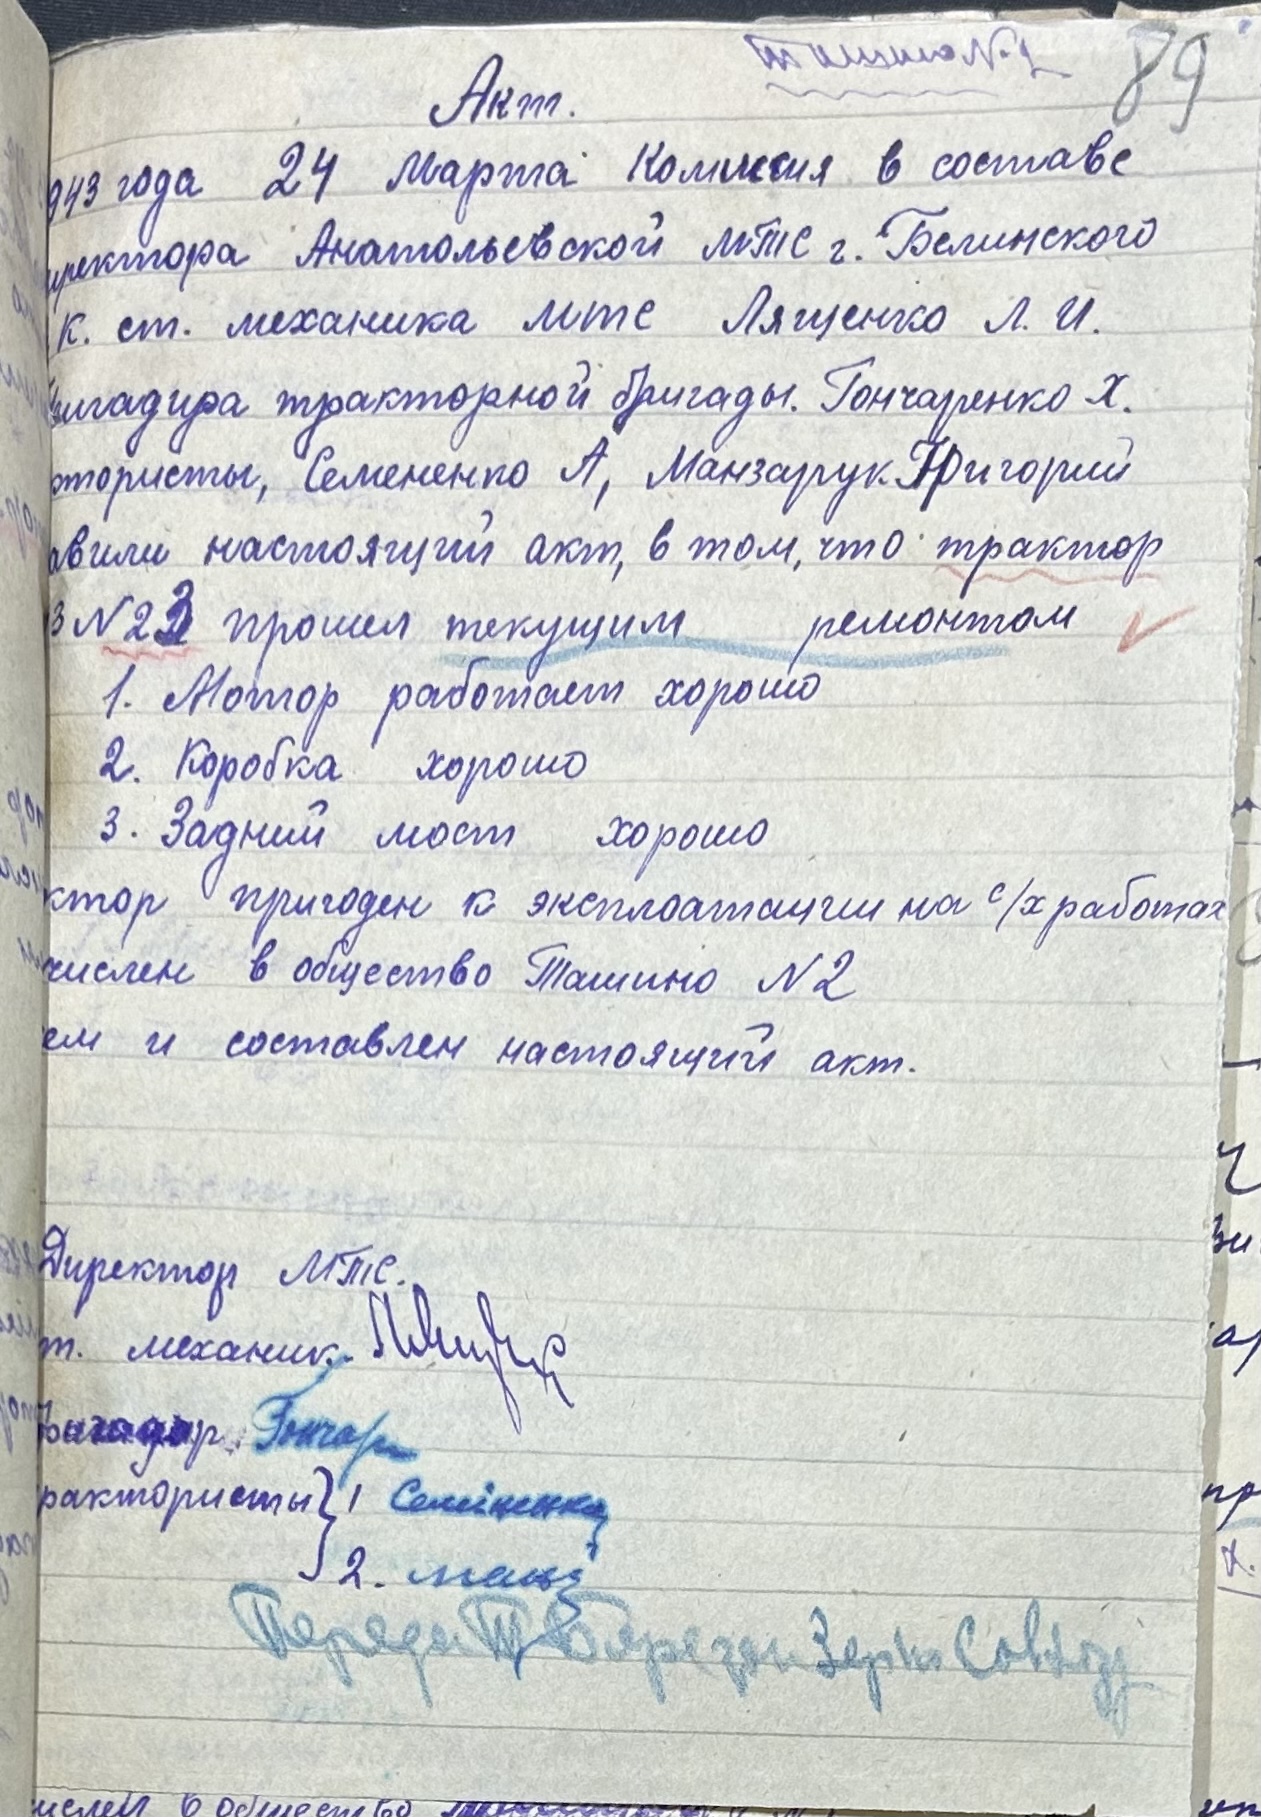 Ташино N-2
89
Акт.
943 года 24 Марта Комиссия в составе
иректора Анатольевской МТС г. Белинского
К. ст. механика МТС Лященко Л. И.
бригадира тракторной бригады. Гончаренко Х.
ктористы, Семененко А, Манзарук Григорий
авили настоящий акт, в том, что трактор
З N 23 прошел текущим ремонтом
1. Мотор работает хорошо
2. Коробка хорошо
3. Задний мост хорошо
ктор пригоден к эксплоатации на с/х работах
числен в общество Ташино N 2
ем и составлен настоящий акт.
Директор МТС.
т. механик.
Бригадир Гончар
рактористы 1 Семіненко
2. манз
Передан в Березан Зерно Совхоз
ислен в общество